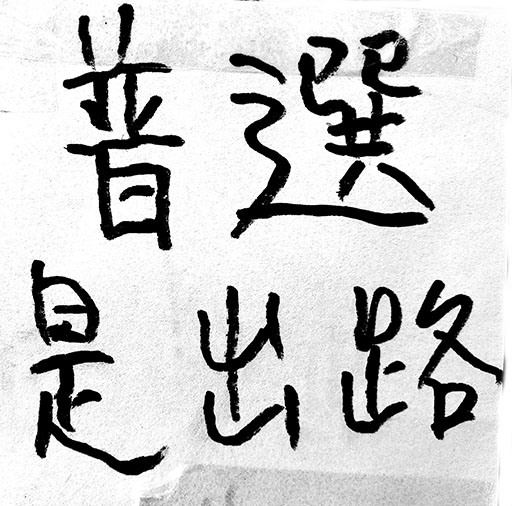 普選
是出路